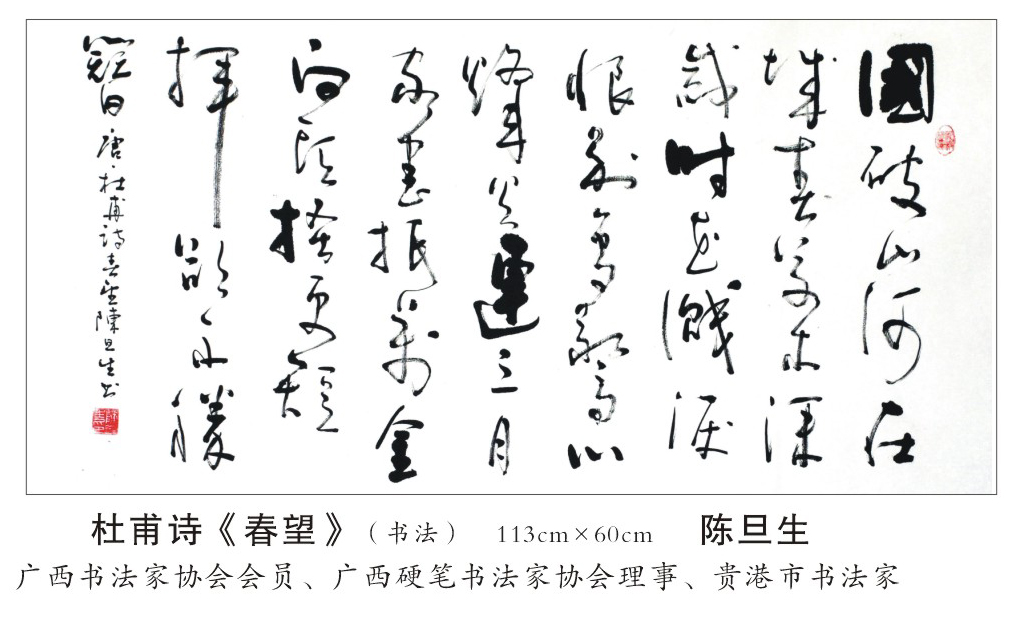 國破山河在
城春草木深
感时花濺淚
恨别鳥驚心
烽火連三月
家書抵萬金
白頭搔更短
揮欲不勝
簪 唐·杜甫詩春望陳旦生书
杜甫诗《春望》(书法) 113cm×60cm 陈旦生
广西书法家协会会员、广西硬笔书法家协会理事、贵港市书法家